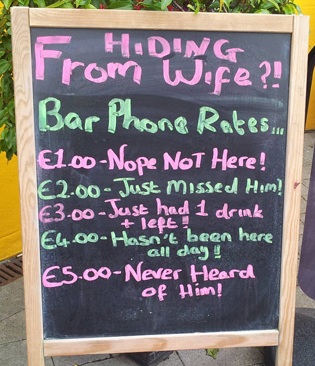 HIDING
From Wife?!
Bar Phone Rates...
€1.00-Nope NOT Here!
€2.00-Just Missed Him!
€3.00-Just had 1 drink
+ left!
€4.00-Hasn't been here
all day!!
€5.00-Never Heard
of Him!